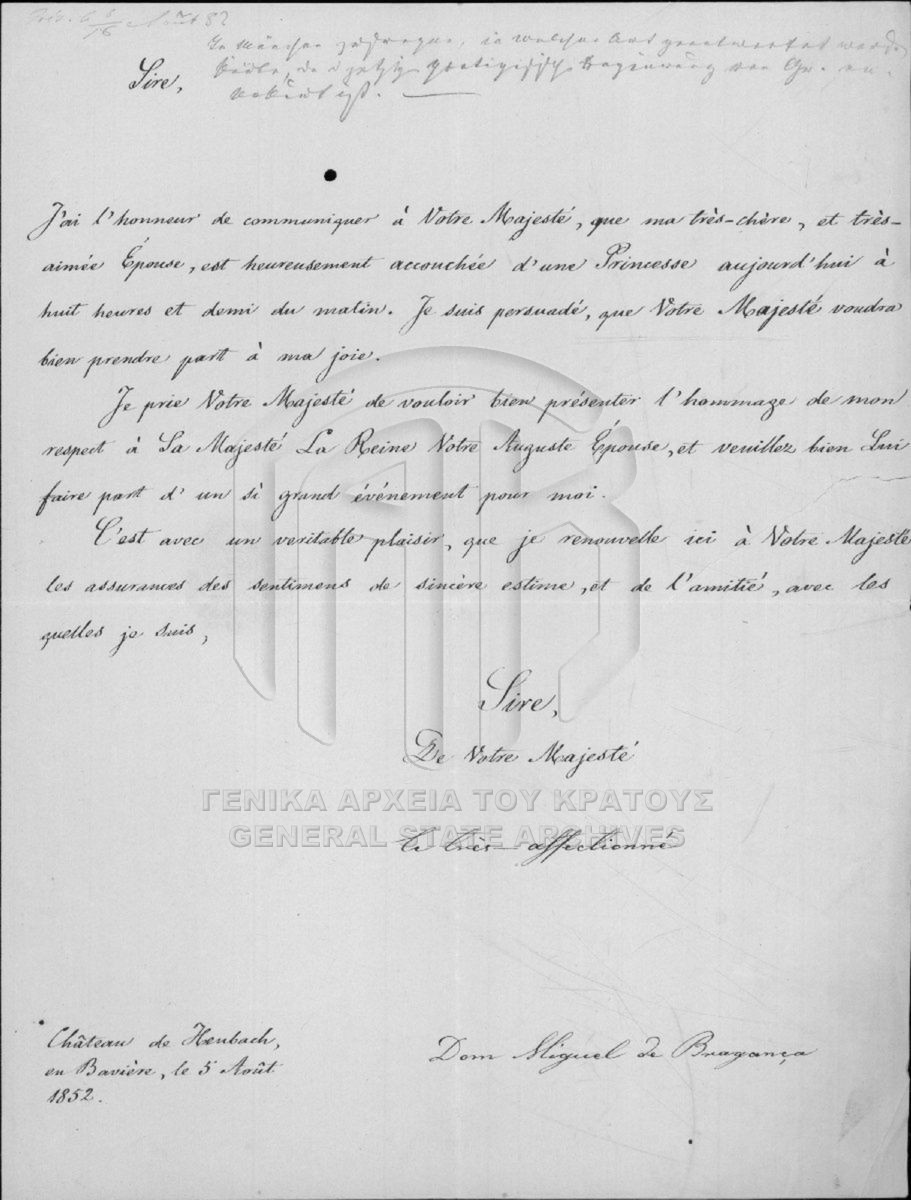 Août 52
In München
Sire,
J'ai l'honneur de communiquer à Votre Majesté, que ma très-chère, et très-
aimée Épouse, est heureusement accouchée d'une Princesse aujourd'hui à
huit heures et demi du matin. Je suis persuadé, que Votre Majesté voudra
bien prendre part à ma joie.
Je prie Votre Majesté de vouloir bien présenter l'hommage de mon
respect à Sa Majesté La Reine Votre Auguste Épouse, et veuillez bien Lui
faire part d'un si grand événement pour moi.
C'est avec un veritable plaisir, que je renouvelle ici à Votre Majesté
les assurances des sentimens de sincère estime, et de l'amitié, avec les
quelles je suis,
Sire,
De Votre Majesté
ΓΕΝΙΚΑ ΑΡΧΕΙΑ ΤΟΥ ΚΡΑΤΟΥΣ
GENERAL STATE ARCHIVES
le très-affectionné
Château de Heubach,
en Bavière, le 5 Août
1852.
Dom Miguel de Bragança